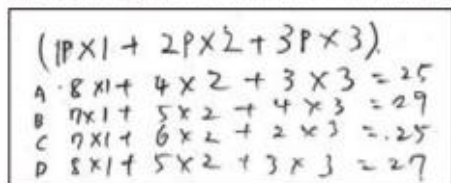 (1P×1+ 2P×2+3P×3)
A 8×1+ 4×2 + 3×3 =25
B 7×1+ 5×2 + 4×3 =29
C 7×1+ 6×2 + 2×3 =.25
D 8×1+ 5×2 + 3×3 =27